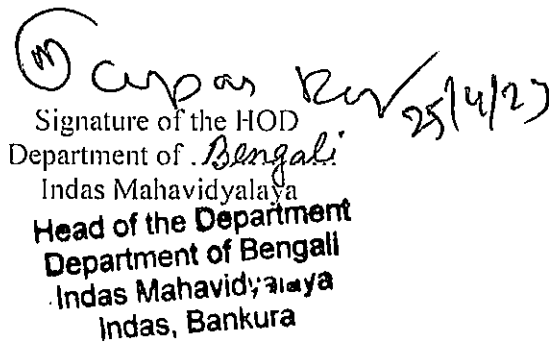 25/4/23
Signature of the HOD
Department of .Bengali
Indas Mahavidyalaya
Head of the Department
Department of Bengali
Indas Mahavidyalaya
Indas, Bankura